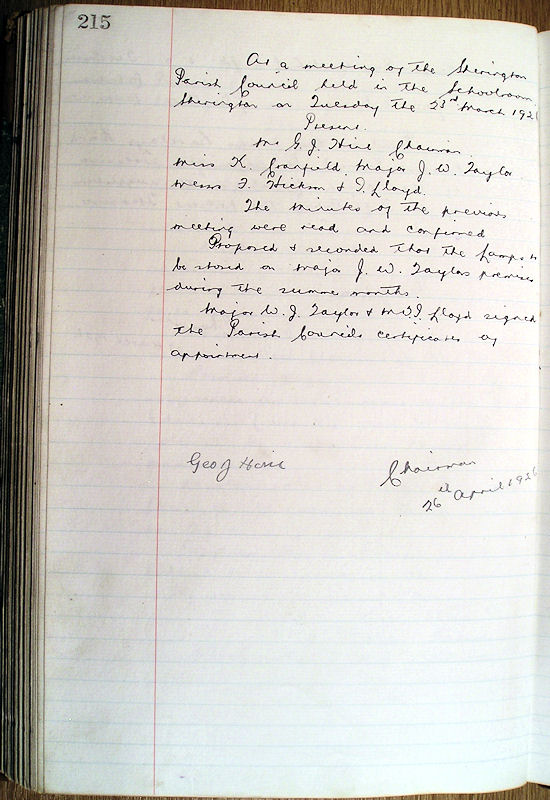 215
At a meeting of the Sherington
Parish Council held in the Schoolroom
Sherington on Tuesday the 23rd March 1926
Present.
Mr G. J. Hine Chairman
Miss K. Cranfield, Major J. W. Taylor
Messrs F. Hickson & J. Lloyd.
The minutes of the previous
meeting were read and confirmed
Proposed & seconded that the Lamps to
be stored on Major J. W. Taylors premises
during the summe months.
Major W. J. Taylor & Mr J Lloyd signed
the Parish Councils certificates of
appointment.
Geo J Hine Chairman
26th April 1926